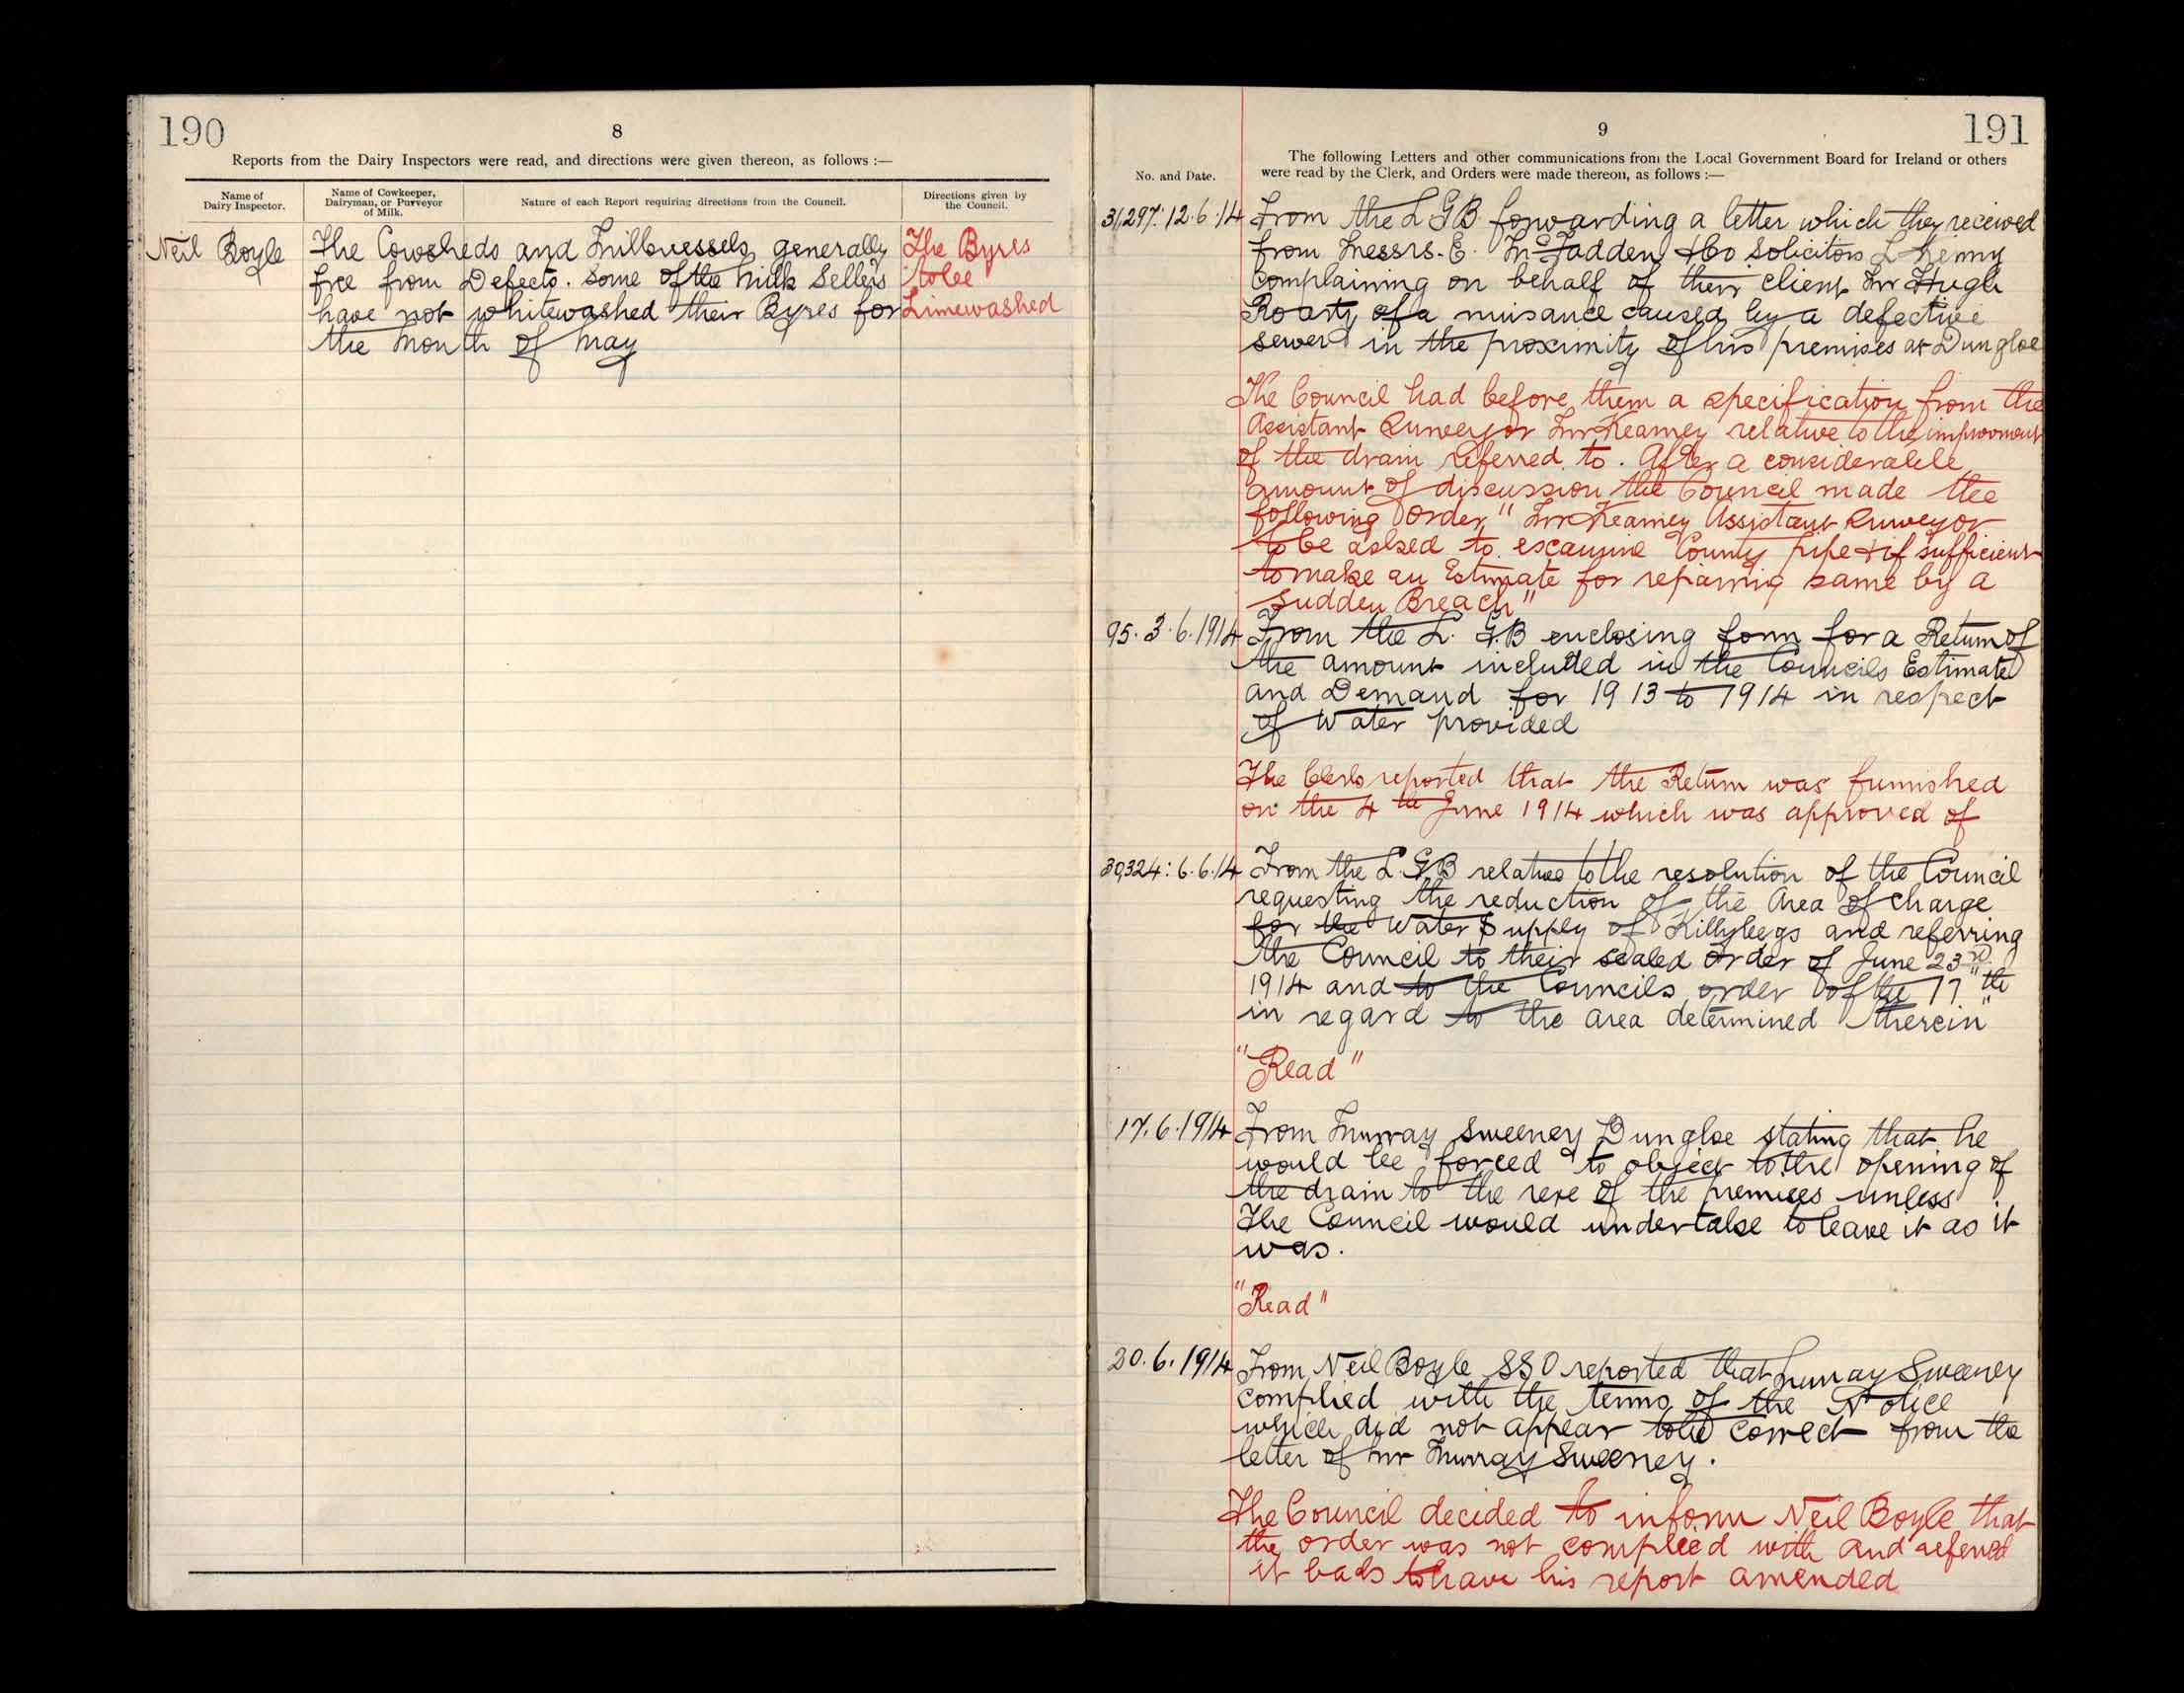 190
8
Reports from the Dairy Inspectors were read, and directions were given thereon, as follows :—
Name of Dairy Inspector.
Name of Cowkeeper, Dairyman, or Purveyor of Milk.
Nature of each Report requiring directions from the Council.
Directions given by the Council.
Neil Boyle
The Cowsheds and Milkvessels generally
free from Defects. Some of the Milk Sellers
have not whitewashed their Byres for
the month of May
The Byres
to be
Limewashed
191
9
No. and Date.
The following Letters and other communications from the Local Government Board for Ireland or others
were read by the Clerk, and Orders were made thereon, as follows :—
31,297: 12.6.14 From the L G B forwarding a letter which they received
from Messrs. E. McFadden & Co Solicitors L Kenny
complaining on behalf of their client Mr Hugh
Roarty of a nuisance caused by a defective
sewer in the proximity of his premises at Dungloe
The Council had before them a specification from the
Assistant Surveyor Mr Kearney relative to the improvement
of the drain referred to. After a considerable
amount of discussion the Council made the
following Order " Mr Kearney Assistant Surveyor
to be asked to examine County pipe & if sufficient
to make an Estimate for repairing same by a
Sudden Breach"
95. 3.6.1914 From the L. G.B enclosing form for a Return of
the amount included in the Councils Estimate
and Demand for 1913 to 1914 in respect
of water provided
The Clerk reported that the Return was furnished
on the 4th June 1914 which was approved of
30,324: 6.6.14 From the L. G.B relative to the resolution of the Council
requesting the reduction of the Area of charge
for the Water Supply of Killybegs and referring
the Council to their sealed order of June 23rd
1914 and to the Councils order of the 17th
in regard to the area determined therein"
"Read"
17.6.1914 From Murray Sweeney Dungloe stating that he
would be forced to object to the opening of
the drain to the rere of the premises unless
The Council would undertake to leave it as it
was.
"Read"
20.6.1914 From Neil Boyle SSO reported that Murray Sweeney
complied with the terms of the Notice
which did not appear to be correct from the
letter of Mr Murray Sweeney.
The Council decided to inform Neil Boyle that
the order was not complied with and referred
it back to have his report amended